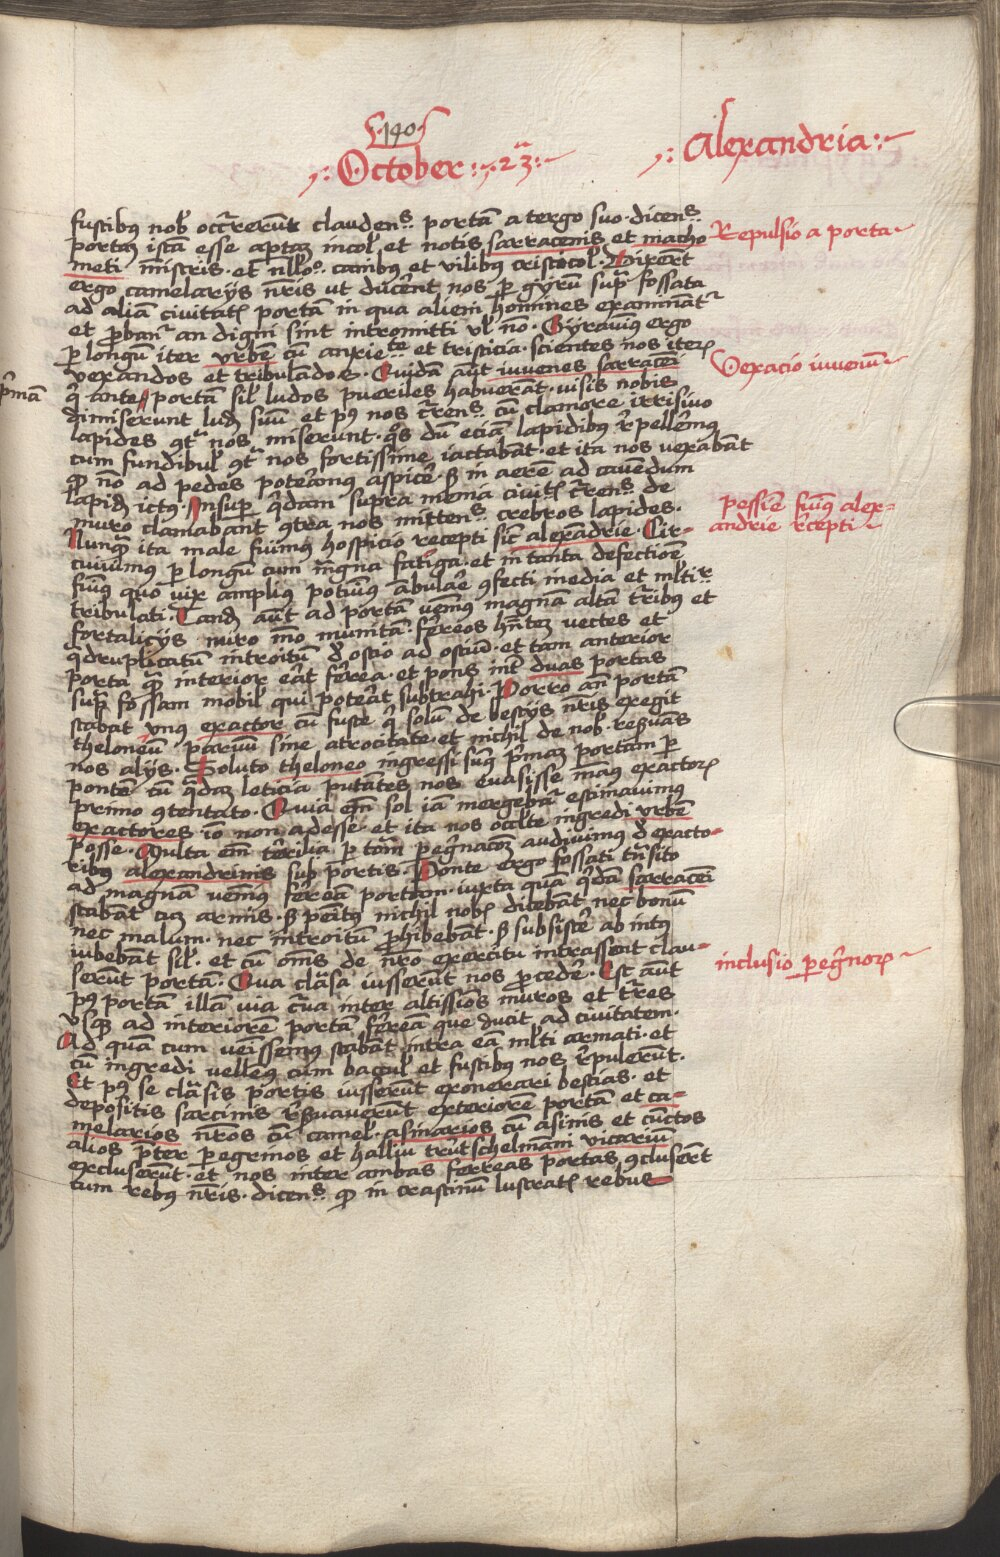 190
October 23
Alexandria
fustibus nobis occurrerunt claudens portam a tergo suo dicens
portam istam esse aptam incolis et notis sarracenis et macho
Repulsio a porta
meti ministris et nullo canibus et vilibus cristicolis Dixerunt
ergo camelariis nostris ut ducerent nos per gyrum supra fossata
ad aliam civitatis portam in qua alieni homines examinantur
et probantur an digni sint intromitti vel non Gyravimus ergo
per longum iter urbem cum anxietate et tristicia scientes nos iterum
vexandos et tribulandos Quidam autem iuvenes sarraceni
Vexacio iuvenum
primam
qui ante portam simul ludos pueriles habuerant visis nobis
dimiserunt ludum suum et post nos currens cum clamore irrisivo
lapides contra nos miserunt quos dum eciam lapidibus repellerimus
cum fundibulis contra nos fortissime iactabant et ita nos vexabant
quod non ad pedes poteramus aspicere sed in aerem ad cavendum
lapidum ictus Insuper quidam supra menia civitatis currens de
muro clamabant contra nos mittens crebros lapides
pessime fuimus alex-
andrie recepti
Nunquam ita male fuimus hospicio recepti sicut alexandrie Cir-
cuivimus per longum cum magna fatiga et in tanta defectione
fuimus quod vix amplius potuimus ambulare confecti inedia et multum
tribulati Tandem autem ad portam venimus magnam altam turribus et
fortaliciis muro munitam ferreos habentem vectes et
quadruplicatum introitum de ostio ad ostium et tam anterior
porta quam interior erat ferrea et pons inter duas portas
supra fossam mobilis qui poterat subtrahi Porro ante portam
stabat unus exactor cum fuste qui solum de bestiis nostris exegit
theloneum parvum sine atrocitate et nichil de nobis reservans
nos aliis Soluto theloneo ingressi sumus primam portam per
pontem cum quadam leticia putantes nos evasisse manus exactorum
primo contentato Quia enim sol iam mergebatur estimavimus
exactores ideo non adesse et ita nos occulte ingredi urbem
posse Multa enim terribilia per totam peregrinacionem audivimus de exacto-
ribus alexandrinis sub portis Ponte ergo fossati transito
ad magnam venimus ferream portam iuxta quam quidam sarraceni
stabant cum armis sed penitus nichil nobis dicebant nec bonum
nec malum nec introitum prohibebant sed subsistere ab intus
iubebant simul et cum omnes de nostro exercitu intrassent clau-
inclusio peregrinorum
serunt portam Qua clausa iusserunt nos procedere Est autem
post portam illam via curva inter altissimos muros et turres
usque ad interiorem portam ferream que ducit ad civitatem
Ad quam cum venissemus stabant intra eam multi armati et
cum ingredi vellemus cum baculis et fustibus nos repulerunt
Et post se clausis portis iusserunt exonerari bestias et
depositis sarcinis reseraverunt exteriorem portam et ca-
melarios nostros cum camelis asinarios cum asinis et cunctos
alios preter peregrinos et halliu trutschelmanni vicarium
excluserunt et nos inter ambas ferreas portas concluserunt
cum rebus nostris dicens quod in crastinum lustratis rebus